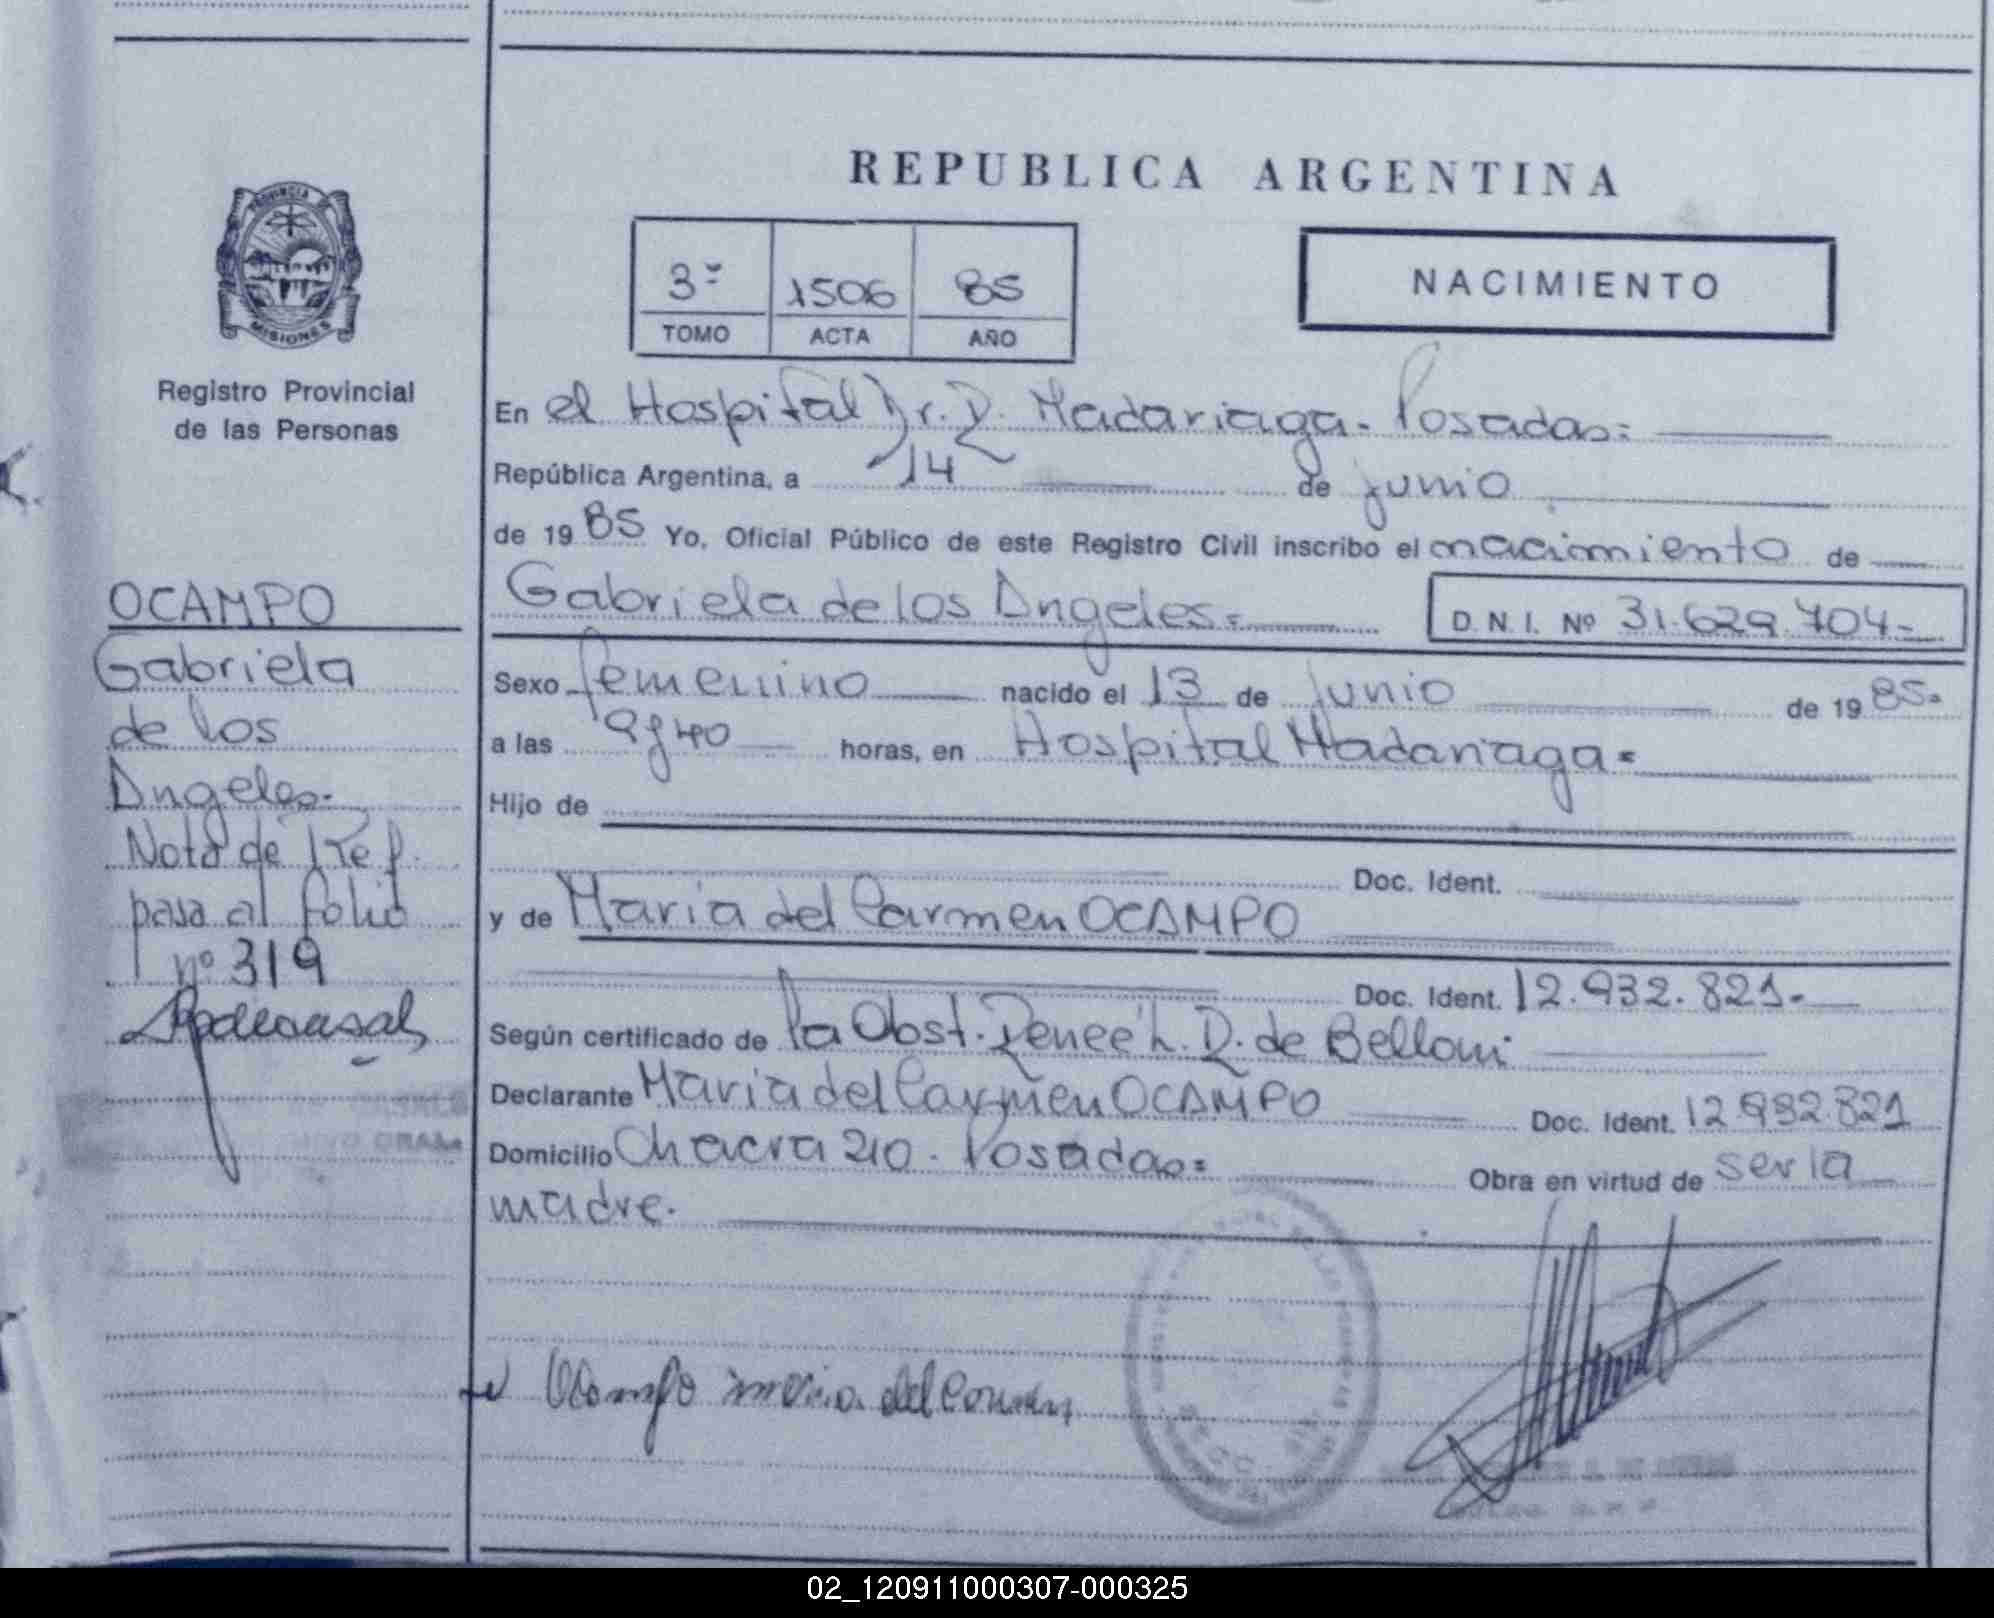 REPUBLICA ARGENTINA
PROVINCIA
MISIONES
Registro Provincial
de las Personas
3º 1506 85
TOMO ACTA AÑO
NACIMIENTO
En el Hospital Dr. R. Madariaga. Posadas=
República Argentina, a 14 de junio
de 1985 Yo, Oficial Público de este Registro Civil inscribo el nacimiento de
Gabriela de los Angeles=
D.N.I. Nº 31.629.704-
Sexo femenino nacido el 13 de junio de 1985=
a las 9y40 horas, en Hospital Madariaga=
Hijo de
Doc. Ident.
y de Maria del Carmen OCAMPO
Doc. Ident. 12.932.821.
Según certificado de la Obst. Renee L. R. de Belloni
Declarante Maria del Carmen OCAMPO Doc. Ident. 12.932.821
Domicilio Chacra 210. Posadas= Obra en virtud de ser la
madre.
Ocampo maria del Carmen
OCAMPO
Gabriela
de los
Angeles.
Nota de Ref.
pasa al folio
nº 319
02_120911000307-000325